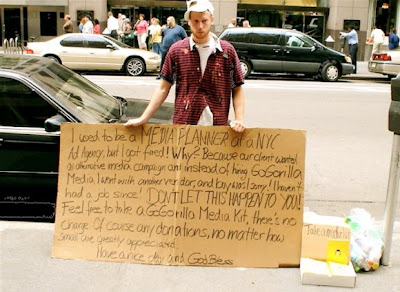 I used to be a MEDIA PLANNER at a NYC
Ad Agency, but I got fired! Why? Because our client wanted
an alternative media campaign and instead of hiring GoGorilla
Media, I went with another vendor, and boy was I sorry! I haven't
had a job since! DON'T LET THIS HAPPEN TO YOU!
Feel free to take a GoGorilla Media Kit, there's no
charge. Of course any donations, no matter how
small are greatly appreciated.
Have a nice day and God Bless
Take a media kit